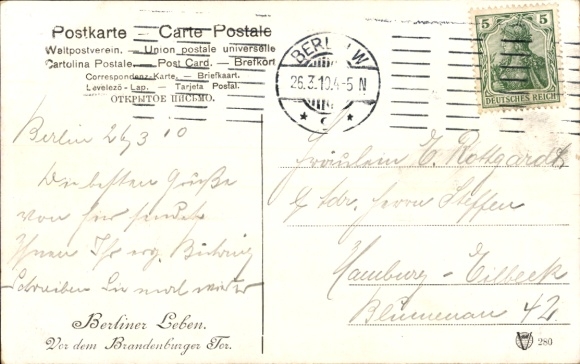 Postkarte — Carte Postale
Weltpostverein. — Union postale universelle
Cartolina Postale. — Post Card. — Brefkort
Correspondenz-Karte. — Briefkaart.
Levelező-Lap. — Tarjeta Postal.
ОТКРЫТОЕ ПИСЬМО.
BERLIN W
26.3.10.4-5N
* c *
5 5
DEUTSCHES REICH
Berlin 26/3 10
Die besten Grüße
von hier sendet
Ihnen Ihr erg.
Schreiben Sie mal wieder
Fräulein E. Rottgardt
Adr. Herrn Steffen
Hamburg - Eilbeck
Blumenau 42.
Berliner Leben.
Vor dem Brandenburger Tor.
280